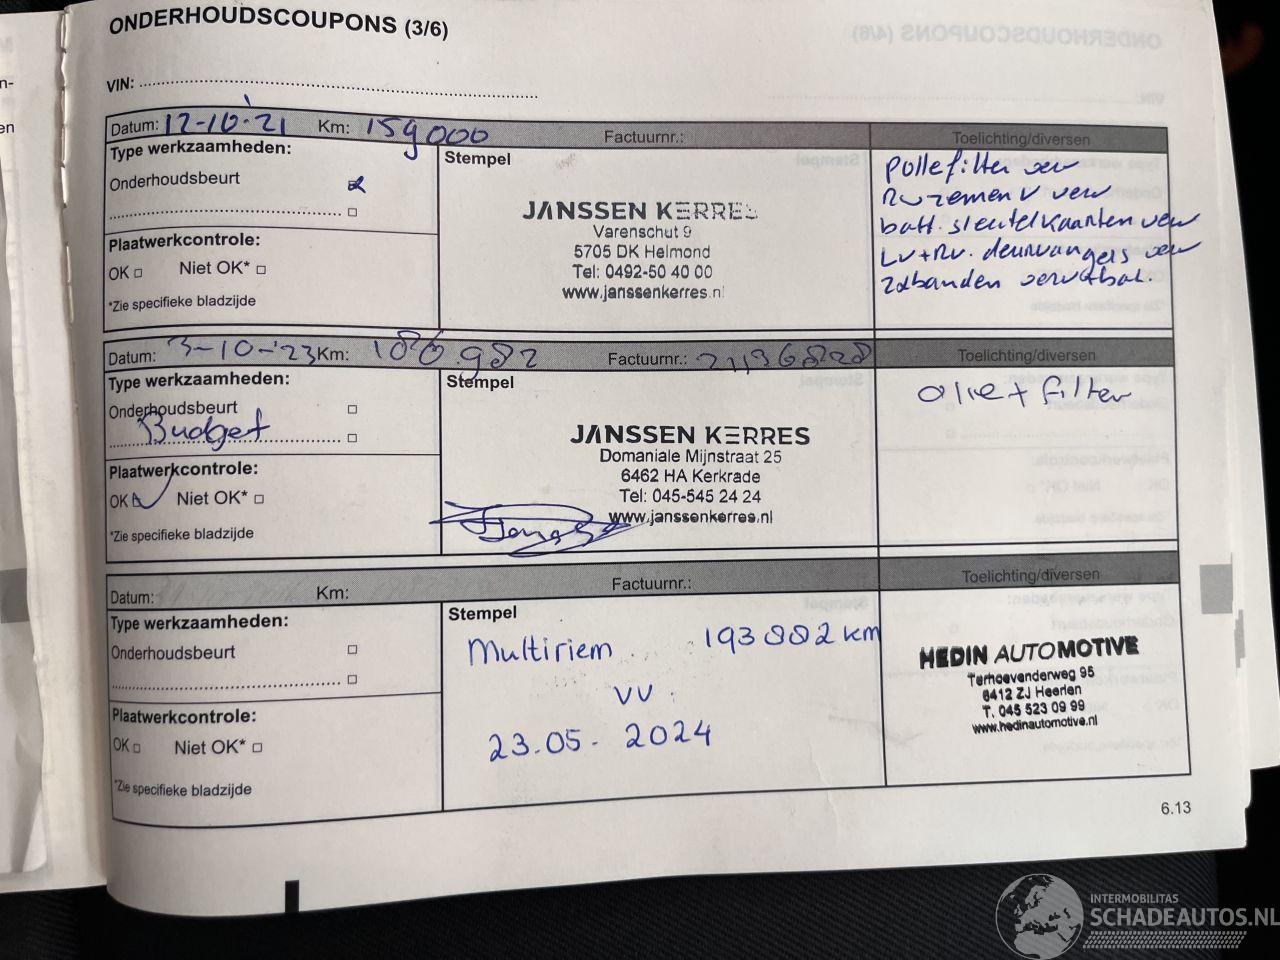 ONDERHOUDSCOUPONS (3/6)
VIN:
Datum: 12-10-'21 Km: 159000 Factuurnr.: Toelichting/diversen
Type werkzaamheden:
Onderhoudsbeurt
Plaatwerkcontrole:
OK Niet OK*
*Zie specifieke bladzijde
Stempel
JANSSEN KERRES
Varenschut 9
5705 DK Helmond
Tel: 0492-50 40 00
www.janssenkerres.nl
Pollefilter verv
batt. sleutelkaarten verv
Lv+Rv. deurvangers verv
Datum: 3-10-'23 Km: 186.982 Factuurnr.: Toelichting/diversen
Type werkzaamheden:
Onderhoudsbeurt
Budget
Plaatwerkcontrole:
OK Niet OK*
*Zie specifieke bladzijde
Stempel
JANSSEN KERRES
Domaniale Mijnstraat 25
6462 HA Kerkrade
Tel: 045-545 24 24
www.janssenkerres.nl
olie + filter
Datum: Km: Factuurnr.: Toelichting/diversen
Type werkzaamheden:
Onderhoudsbeurt
Plaatwerkcontrole:
OK Niet OK*
*Zie specifieke bladzijde
Stempel
Multiriem 193882 km
VV
23.05. 2024
HEDIN AUTOMOTIVE
Terhoevenderweg 95
6412 ZJ Heerlen
T. 045 523 09 99
www.hedinautomotive.nl
6.13
INTERMOBILITAS
SCHADEAUTOS.NL